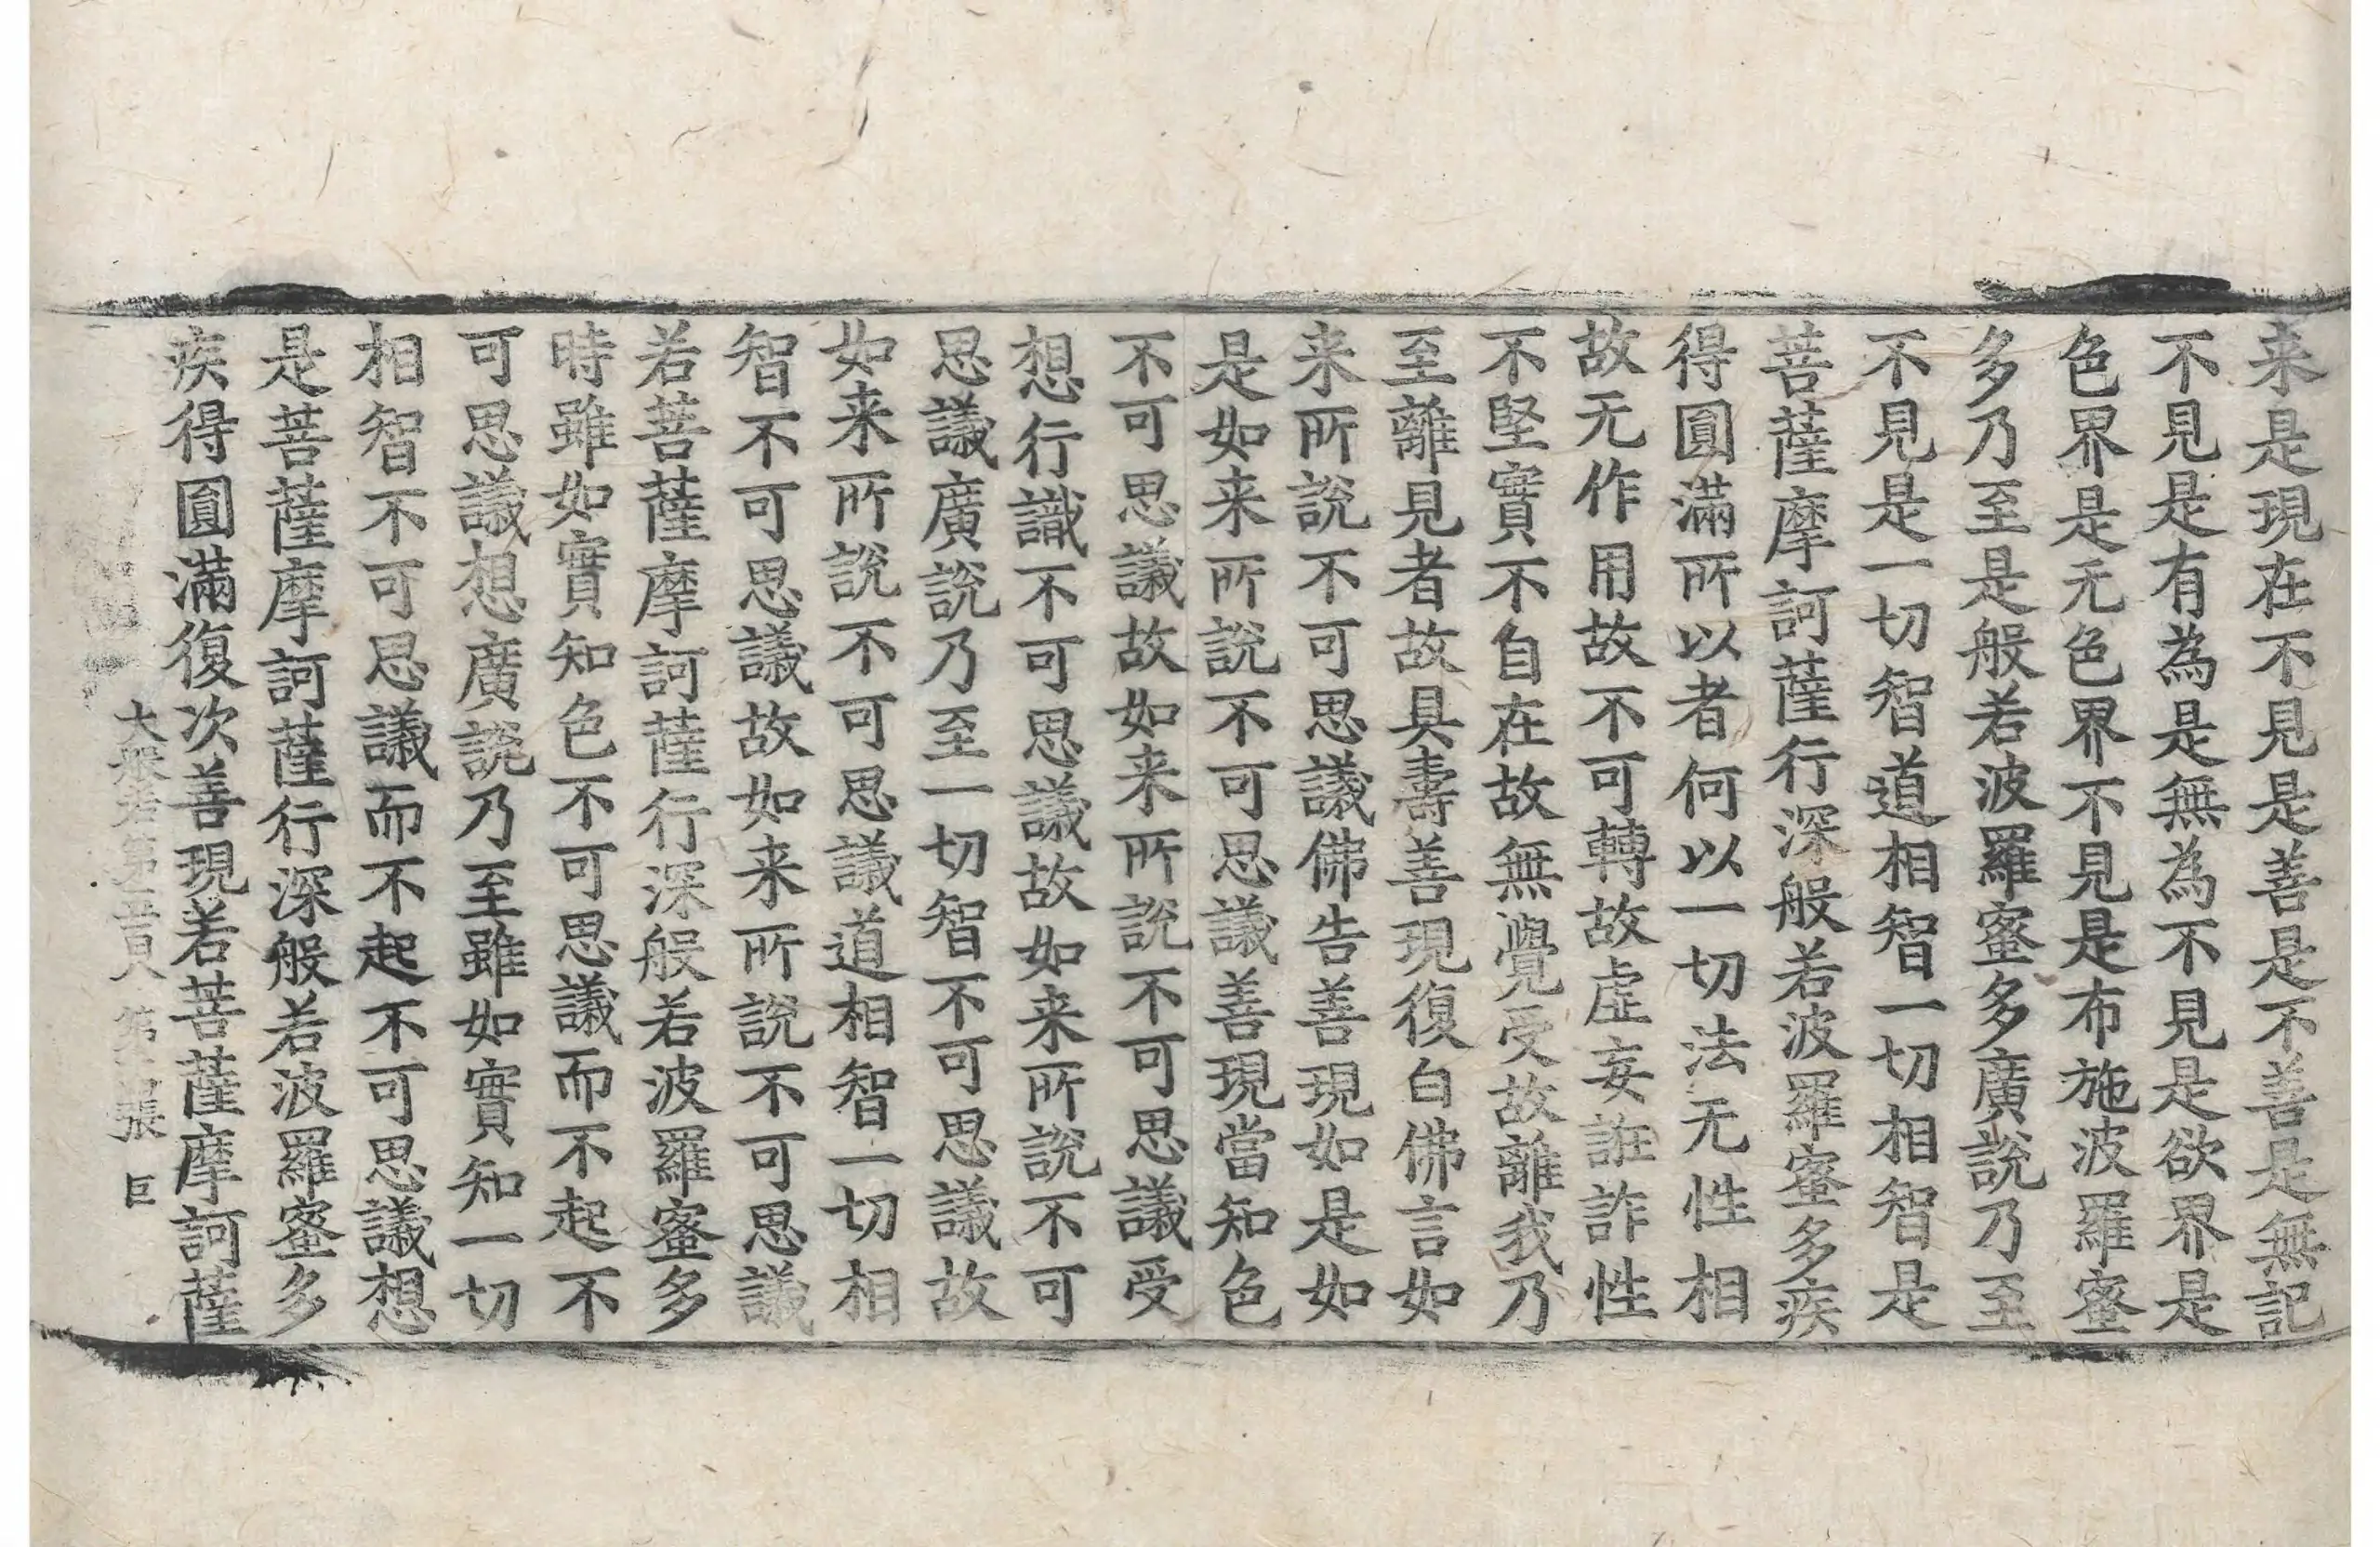 来是現在不見是善是不善是無記
不見是有為是無為不見是欲界是
色界是无色界不見是布施波羅蜜
多乃至是般若波羅蜜多廣說乃至
不見是一切智道相智一切相智是
菩薩摩訶薩行深般若波羅蜜多疾
得圓滿所以者何以一切法无性相
故无作用故不可轉故虛妄誑詐性
不堅實不自在故無覺受故離我乃
至離見者故具壽善現復白佛言如
来所說不可思議佛告善現如是如
是如来所說不可思議善現當知色
不可思議故如来所說不可思議受
想行識不可思議故如来所說不可
思議廣說乃至一切智不可思議故
如来所說不可思議道相智一切相
智不可思議故如来所說不可思議
若菩薩摩訶薩行深般若波羅蜜多
時雖如實知色不可思議而不起不
可思議想廣說乃至雖如實知一切
相智不可思議而不起不可思議想
是菩薩摩訶薩行深般若波羅蜜多
疾得圓滿復次善現若菩薩摩訶薩
大般若第五百 第 張 巨